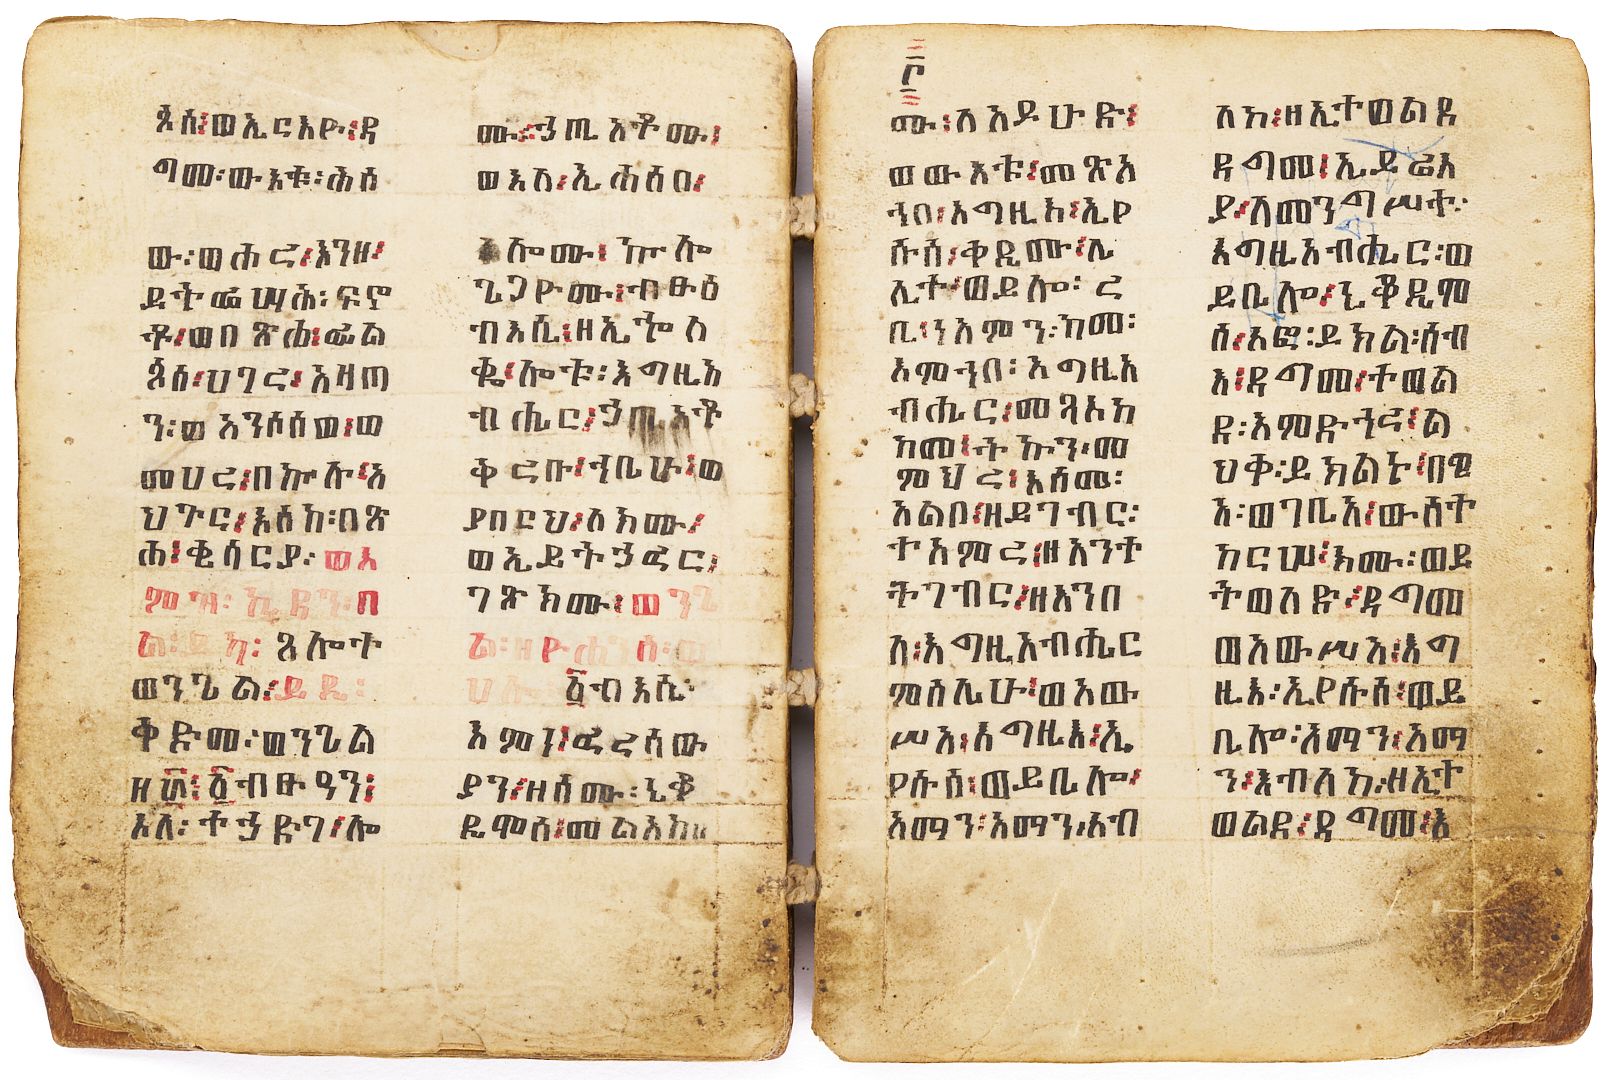 ጶስ፡ወኢርእዮ፡ዳ
ግመ፡ውእቱ፡ሕፅ
ው፡ወሖረ፡እንዘ፡
ይትፌሣሕ፡ፍኖ
ቶ፡ወበጽሐ፡ፊል
ጶስ፡ሀገረ፡አዛጦ
ን፡ወአንሶሰወ፡ወ
መሀረ፡በኵሉ፡አ
ህጉር፡እስከ፡በጽ
ሐ፡ቂሳርያ፡ወእ
ምዝ፡ኪዳን፡በ
ል፡ይካ፡ጸሎተ
ወንጌል፡ይዲ፡
ቅድመ፡ወንጌል
ዘ፴፡፩ብፁዓን፡
እለ፡ተኃድገ፡ሎ
ሙ፡ኃጢአቶሙ፡
ወእለ፡ኢሐሰበ፡
ሎሙ፡ኵሎ
ጌጋዮሙ፡ብፁዕ
ብእሲ፡ዘኢኈለ
ቈ፡ሎቱ፡እግዚአ
ብሔር፡ኃጢአቶ
ቅረቡ፡ኀቤሁ፡ወ
ያበርህ፡ለክሙ፡
ወኢይትኃፈር፡
ገጽክሙ፡ወንጌ
ል፡ዘዮሐንስ፡ወ
ሀሎ፡፩ብእሲ፡
እምነ፡ፈረሳው
ያን፡ዘስሙ፡ኒቆ
ዲሞስ፡መልአኮ
ሙ፡ለአይሁድ፡
ወውእቱ፡መጽአ
ኀበ፡እግዚእ፡ኢየ
ሱስ፡ቀዲሙ፡ሌ
ሊተ፡ወይሎ፡ረ
ቢ፡ነአምን፡ከመ፡
እምኀበ፡እግዚአ
ብሔር፡መጻእከ
ከመ፡ትኩን፡መ
ምህረ፡እስመ፡
አልቦ፡ዘይገብር፡
ተአምረ፡ዘአንተ
ትገብር፡ዘእንበ
ለ፡እግዚአብሔር
ምስሌሁ፡ወአው
ሥአ፡እግዚእ፡ኢ
የሱስ፡ወይቤሎ፡
አማን፡አማን፡እብ
ለከ፡ዘኢተወልደ
ዳግመ፡ኢይሬእ
ያ፡ለመንግሥተ፡
እግዚአብሔር፡ወ
ይቤሎ፡ኒቆዲሞ
ስ፡እፎ፡ይክል፡ሰብ
እ፡ዳግመ፡ተወል
ደ፡እምድኅረ፡ል
ህቀ፡ይክልኑ፡በዊ
አ፡ወገቢአ፡ውስተ
ከርሠ፡እሙ፡ወይ
ትወለድ፡ዳግመ
ወአውሥአ፡እግ
ዚእ፡ኢየሱስ፡ወይ
ቤሎ፡አማን፡አማ
ን፡እብለከ፡ዘኢተ
ወልደ፡ዳግመ፡እ